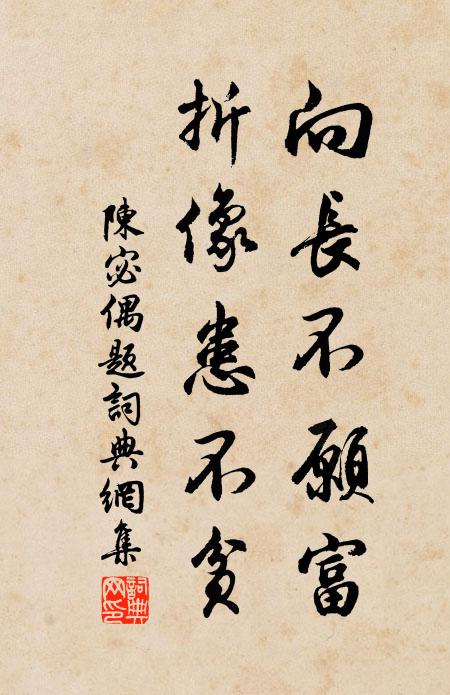 向長不願富
折像患不貧
陳宓偶題詞典網集
詞典
网印